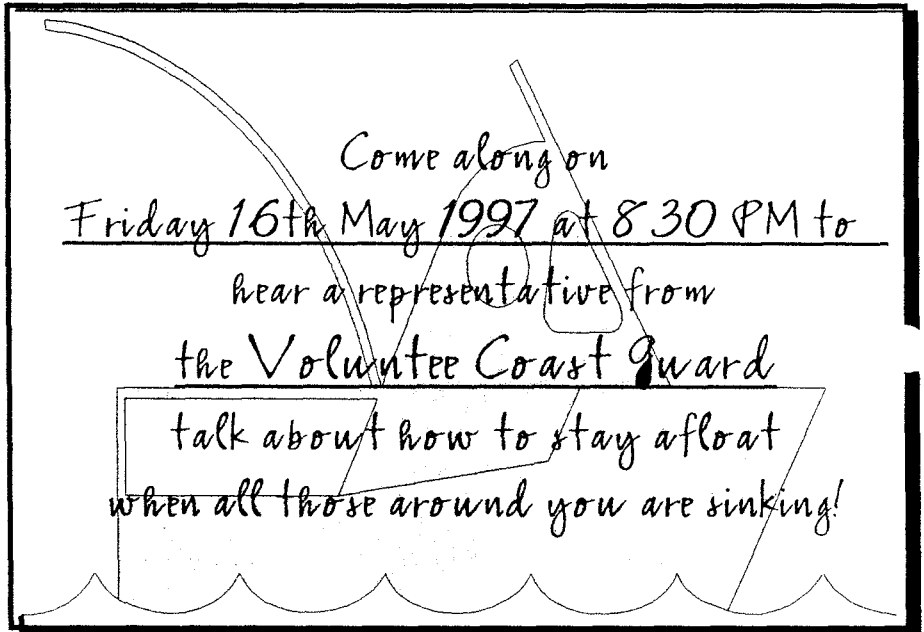 Come along on
Friday 16th May 1997 at 8 30 PM to
hear a representative from
the Voluntee Coast guard
talk about how to stay afloat
when all those around you are sinking!